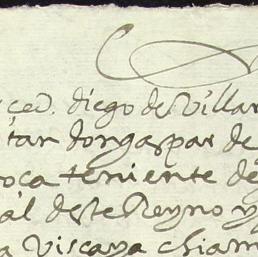 ced. diego de Villar
tar don gaspar de
oca teniente de
al deste Reyno y
a Viscaya Chiam